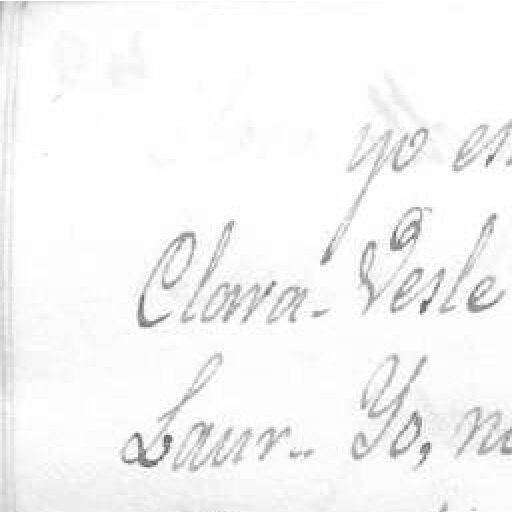 yo en
Clara - Vesle
Laur.. Yo, no